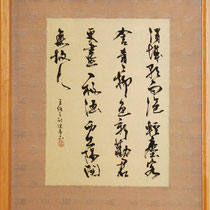 渭城朝雨浥軽塵客
舎青々柳色新勧君
更盡一杯酒西出陽関
無故人
王維